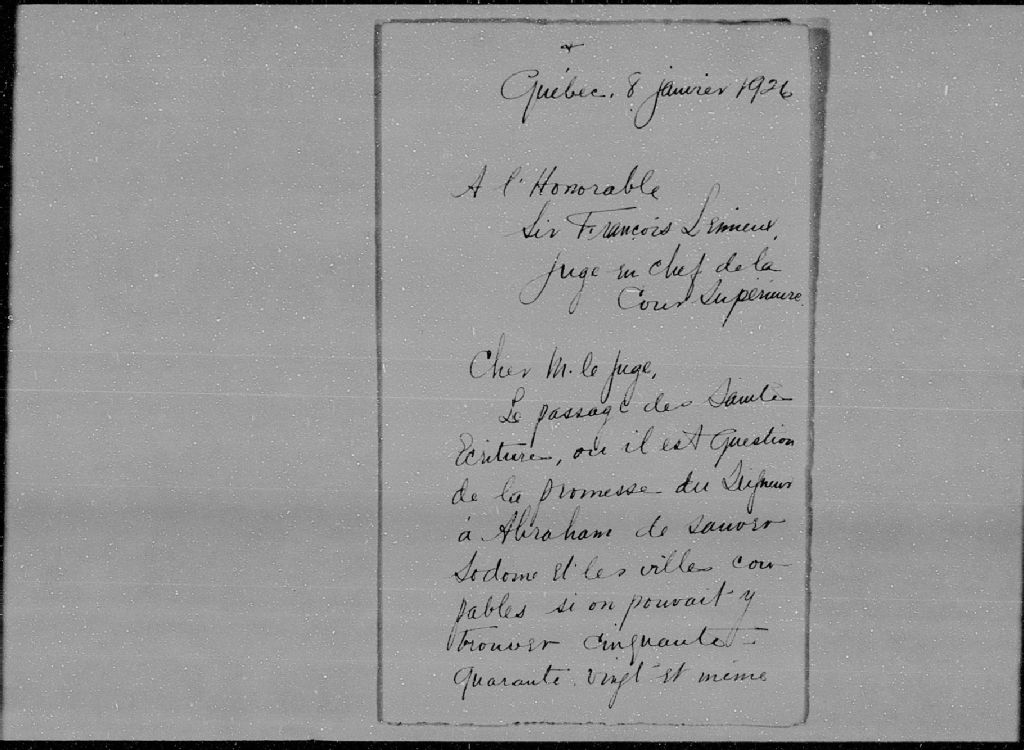 +
Québec, 8 janvier 1926
A l'Honorable
Sir François Lemieux,
Juge en chef de la
Cour Supérieure.
Cher M. le Juge,
Le passage des Saintes
Ecritures, où il est question
de la promesse du Seigneur
à Abraham de sauver
Sodome et les villes cou-
pables si on pouvait y
trouver cinquante -
quarante. vingt et même